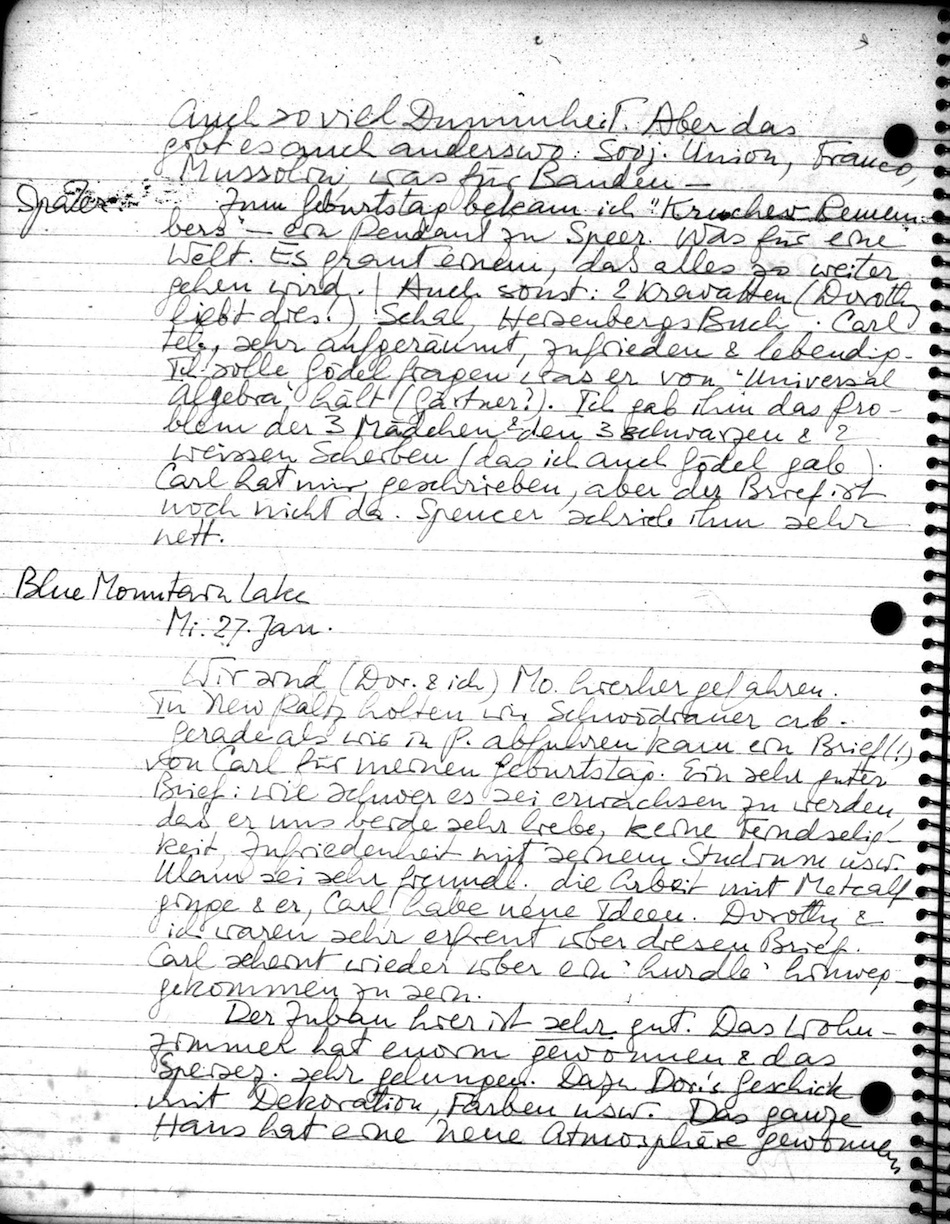 Auch so viel Dummheit. Aber das
gabt es auch anderswo: Sovj. Union, Franco,
Mussolini, was für Banden —
Später: Zum Geburtstag bekam ich "Kruchev Remem-
bers" — ein Pendant zu Speer. Was für eine
Welt. Es graut einem, das alles so weiter
gehen wird. | Auch sonst: 2 Kravatten (Dorothy
liebt dies!) Schal, Heisenbergs Buch. Carl
tel., sehr aufgeräumt, zufrieden & lebendig.
Ich solle Gödel fragen, was er von "Universal
Algebra" hält (Gärtner?). Ich gab ihm das Pro-
blem der 3 Mädchen & den 3 schwarzen & 2
weissen Scheiben (das ich auch Gödel gab).
Carl hat mir geschrieben, aber der Brief ist
noch nicht da. Spencer schrieb ihm sehr
nett.
Blue Mountain Lake
Mi. 27. Jan.
Wir sind (Dor. & ich) Mo. hierher gefahren.
In New Paltz holten wir Schwödiauer ab.
Gerade als wir in P. abfuhren kam ein Brief (!)
von Carl für meinen Geburtstag. Ein sehr guter
Brief: wie schwer es sei erwachsen zu werden,
das er uns beide sehr liebe, keine Feindselig-
keit, Zufriedenheit mit seinem Studium usw.
Ulam sei sehr freundl. die Arbeit mit Metcalf
ginge & er, Carl habe neue Ideen. Dorothy &
ich waren sehr erfreut über diesen Brief.
Carl scheint wieder über ein 'hurdle' hinweg-
gekommen zu sein.
Der Zubau hier ist sehr gut. Das Wohn-
zimmer hat enorm gewonnen & das
Speisez. sehr gelungen. Dazu Dor's Geschick
mit Dekoration, Farben usw. Das ganze
Haus hat eine neue Atmosphäre gewonnen